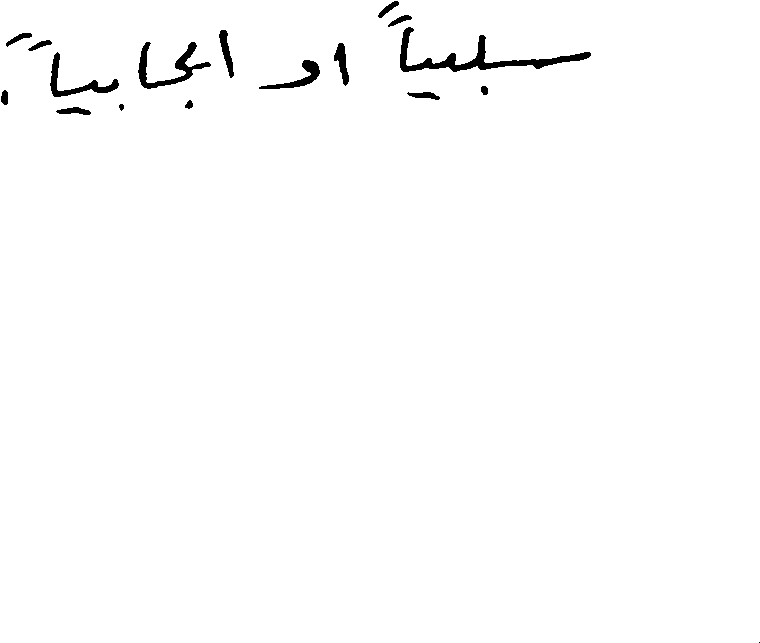 سلبياً او ايجابياً .